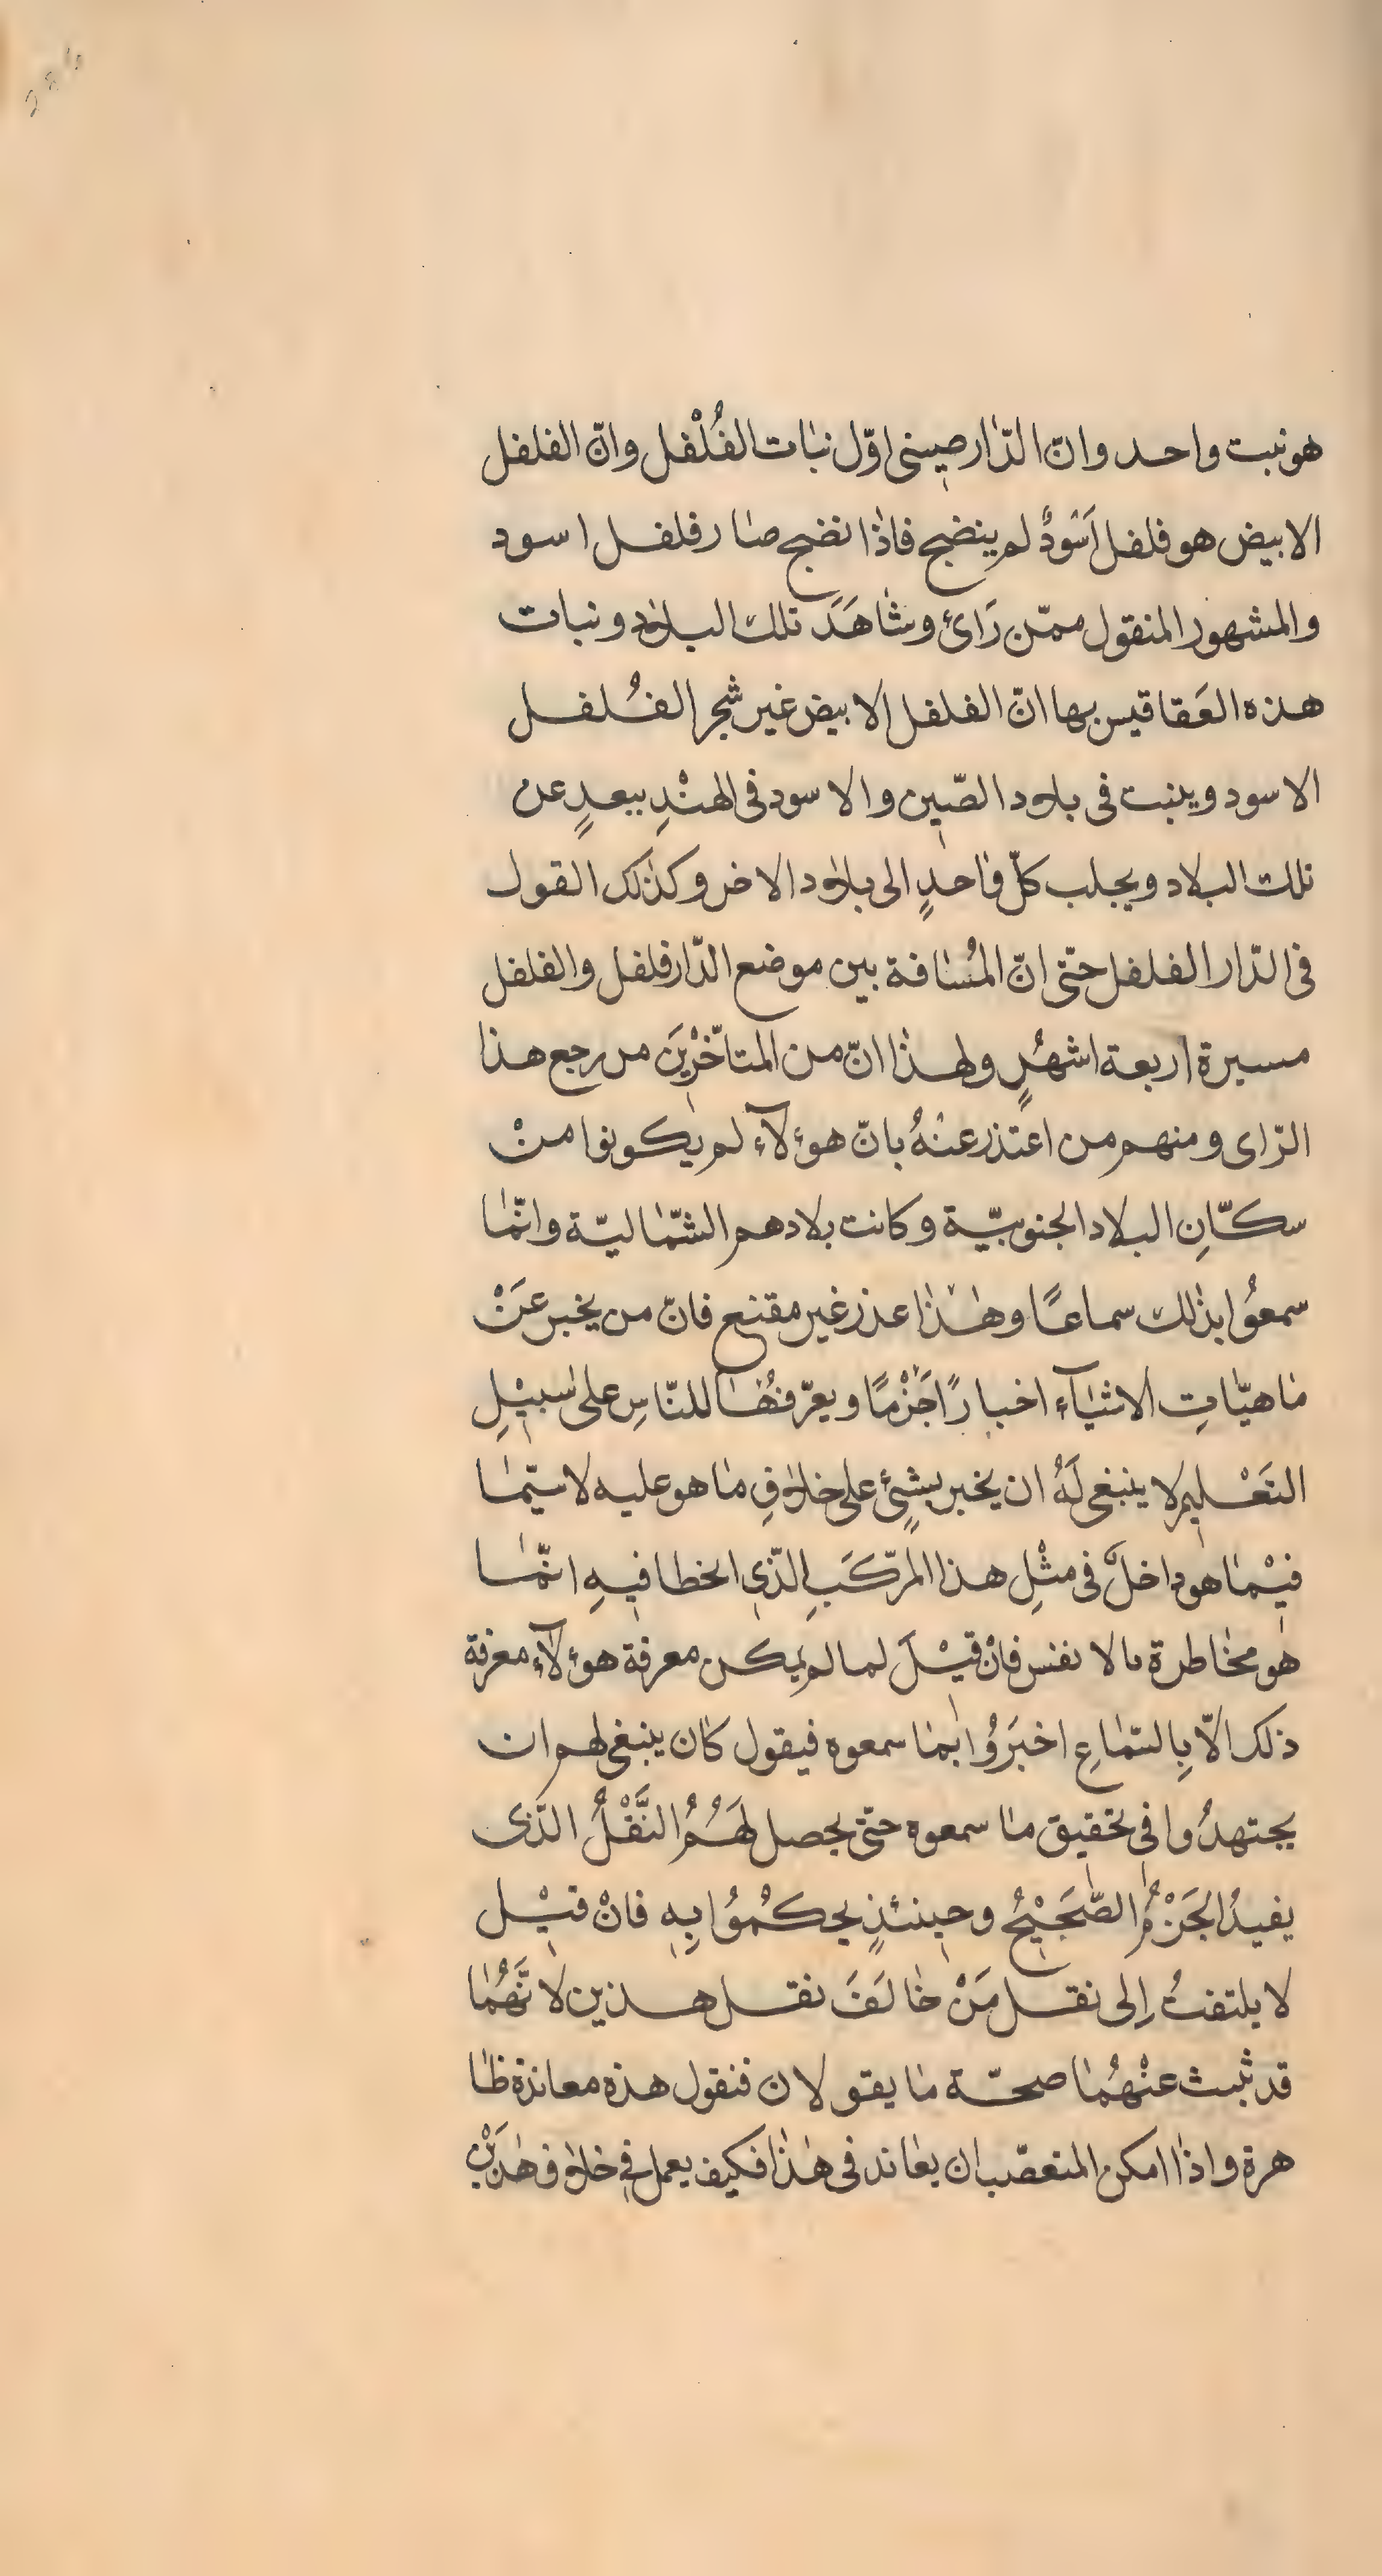 هو نبت واحد وانّ الدّار صينى اوّل نبات الفُلْفل وانّ الفلفل
الابيض هو فلفل اَسْودٌ لم ينضج فاذا نضج صار فلفل اسود
والمشهور المنقول ممّن رَائ وشاهَدَ تلك البلاد ونبات
هذه العَقاقير بها انّ الفلفل الابيض غير شجر الفُلفل
الاسود وينبت فى بلاد الصّين والاسود فى الهنْدِ ببعدٍ عن
تلك البلاد ويجلب كلّ واحدٍ الى بلاد الاخر وكذلك القول
فى الدّار الفلفل حتّى انّ المُسافة بين موضع الدّار فلفل والفلفل
مسيرة اربعة اشهُرٍ ولهذا انّ من المتاَخّرْينَ من رجع هذا
الرّاى ومنهم من اعتذر عنْهُ بانّ هؤلآء لم يكونوا منْ
سكّانِ البلاد الجنوبيّة وكانت بلادهم الشّماليّة وانّما
سمعُوا بذلك سماعًا وهذا عذر غير مقنع فانّ من يخبر عَنْ
ماهيّاتِ الاشيآء اخبارًا جَزْمًا ويعرّفهُا للنّاسِ على سبيْلِ
التَعْليم لا ينبغى لَهُ ان يخبر بشئٍ على خلافِ ما هو عليه لاسيّما
فيْما هو داخلٌ فى مثْلِ هذا المرّكَبِ الّذى الخطا فيهِ انّما
هو مخاطرة بالانفس فانْ قيْلَ لما لم يمكن معرفة هؤلآء معرفة
ذلك الّا بِالسّماعِ اخبَرُوْا بما سمعوه فيقول كان ينبغى لهم ان
يجتهدُوا فى تحقيق ما سمعوه حتّى يحصل لهَمُ النَّقْلُ الّذى
يفيدُ الجَزْمُ الصَّحيْحُ وحينئذٍ يحكمُوْا بِهِ فانْ قيْل
لا يلتفتُ اِلى نقل مَنْ خالَفَ نقل هذين لانَّهُما
قد ثبت عنْهُما صحّة ما يقولان فنقول هذه معاندة ظا
هرة واذا امكن المتعصّب ان يعاند فى هذا فكيف يعمل فى خلاف هذَيْن